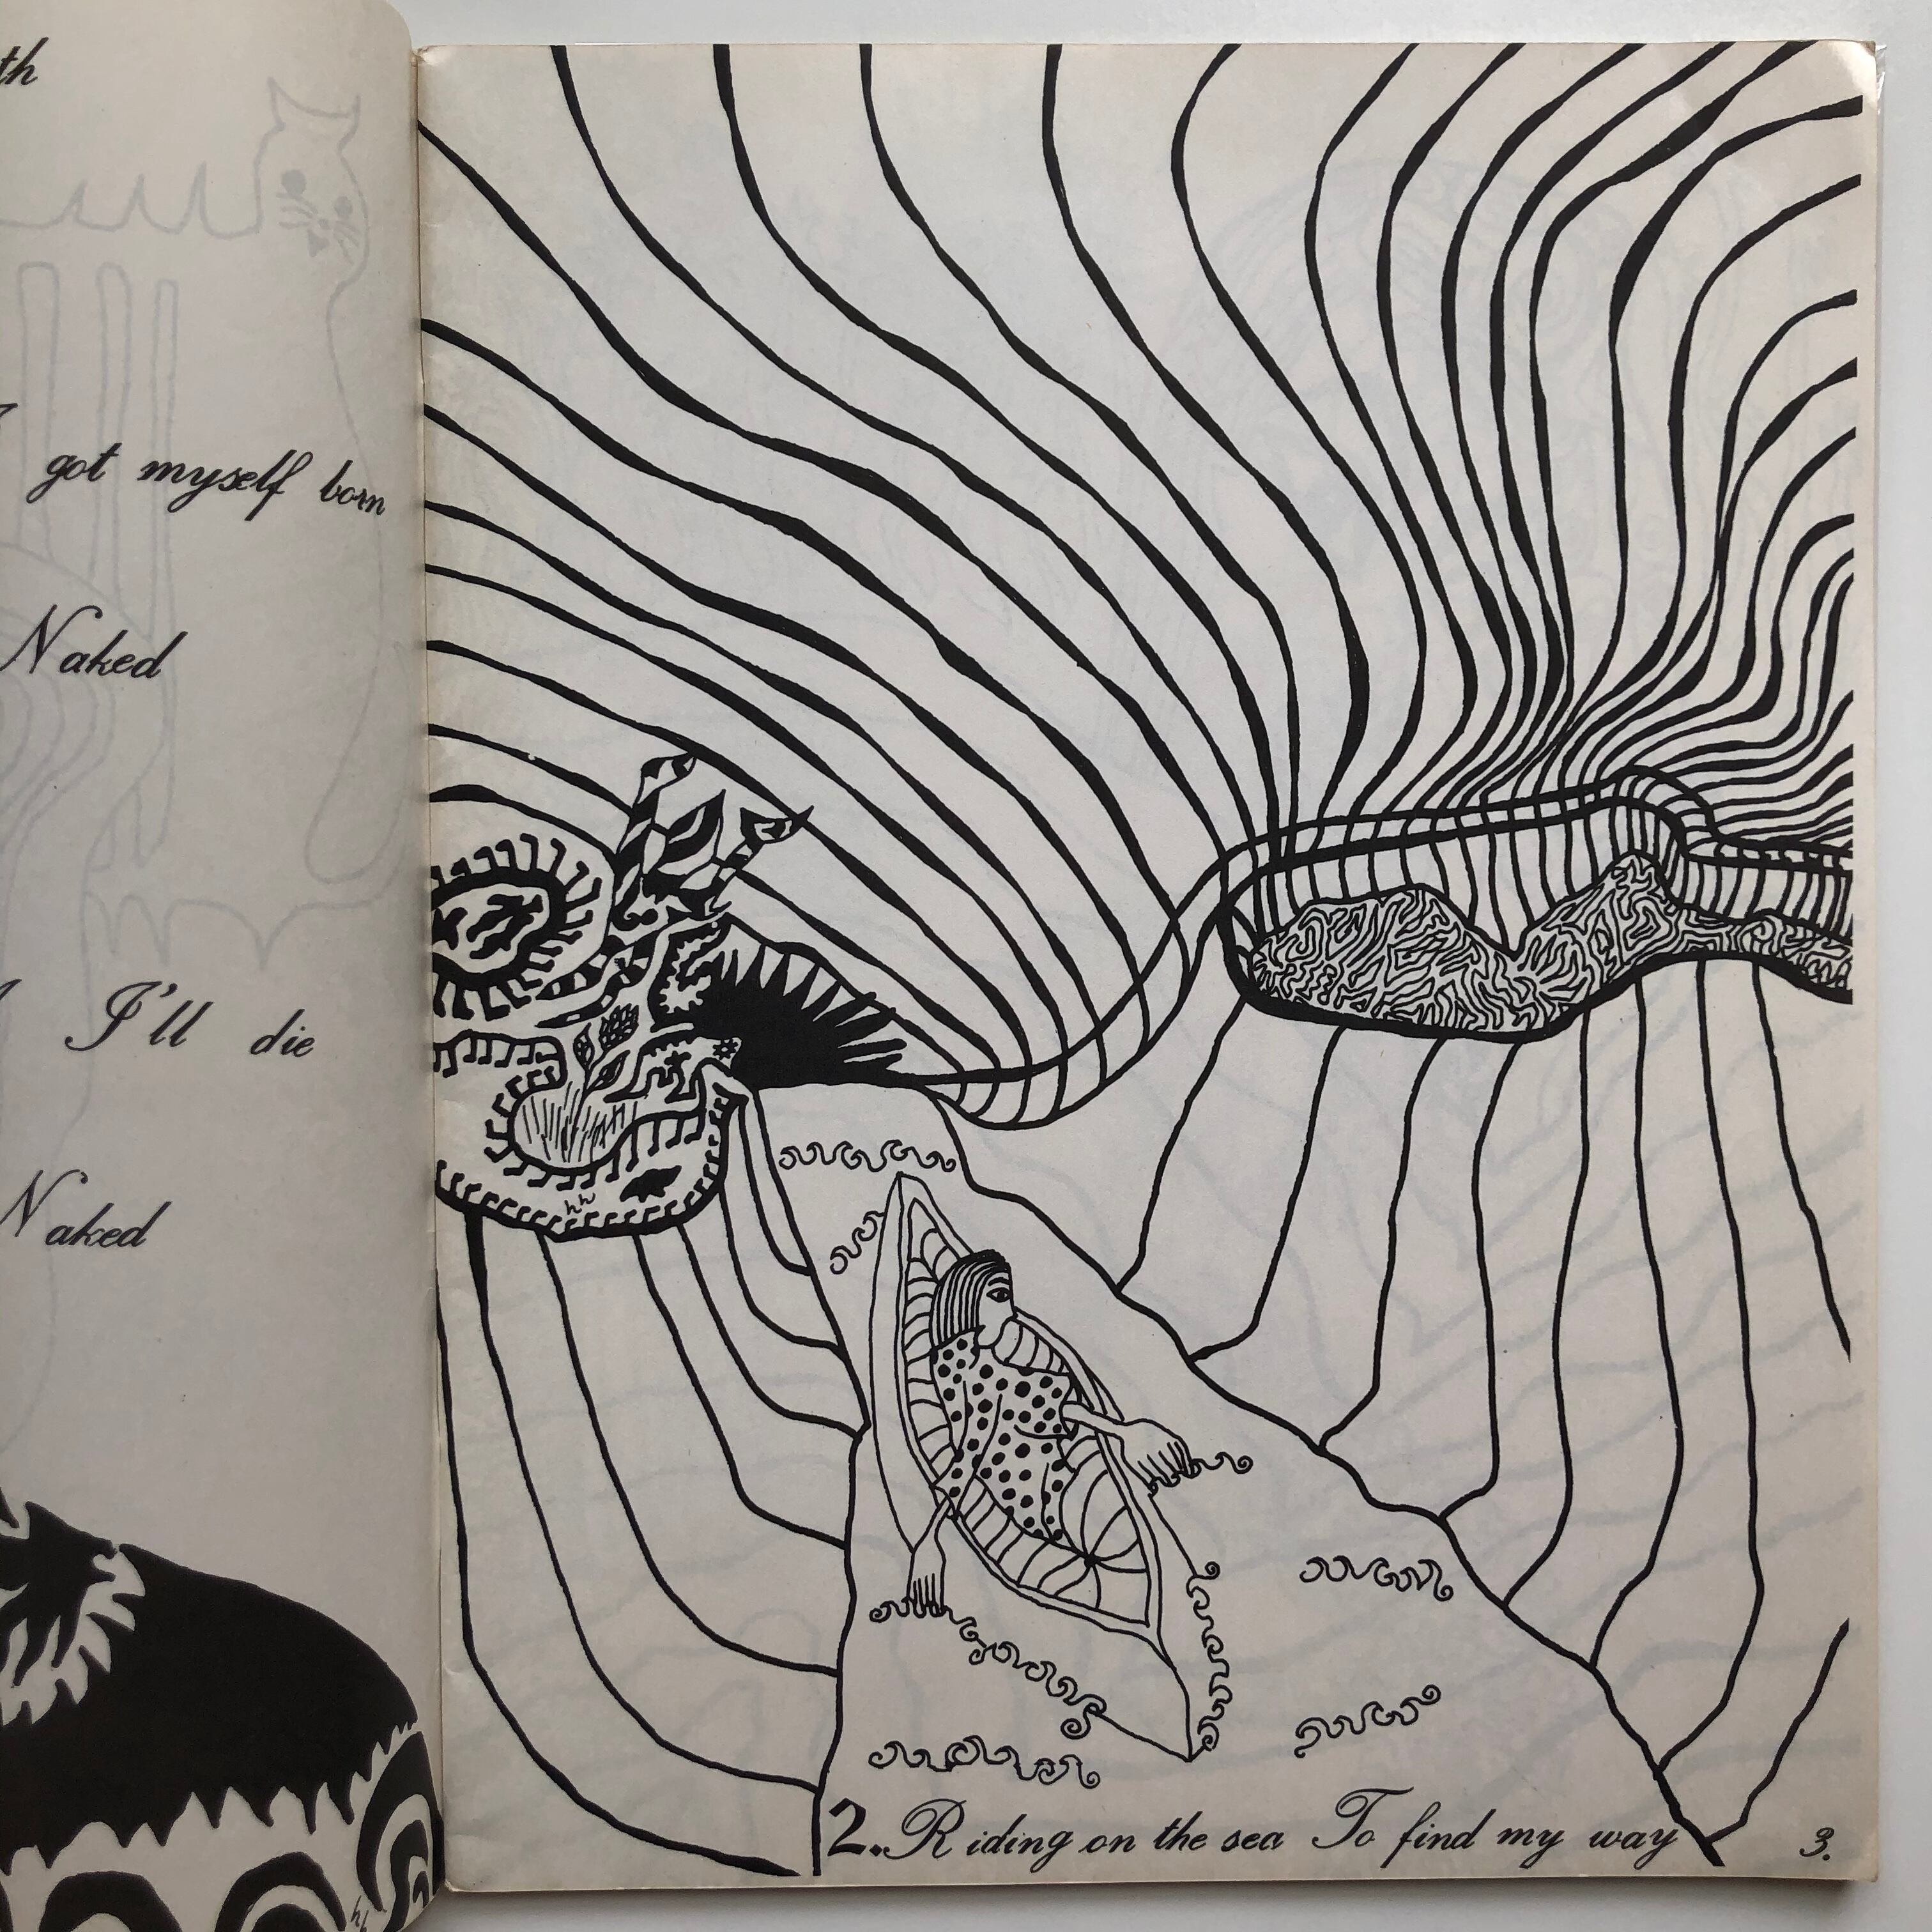 th
got myself born
Naked
I'll die
Naked
hh
hh
2. Riding on the sea To find my way
3.